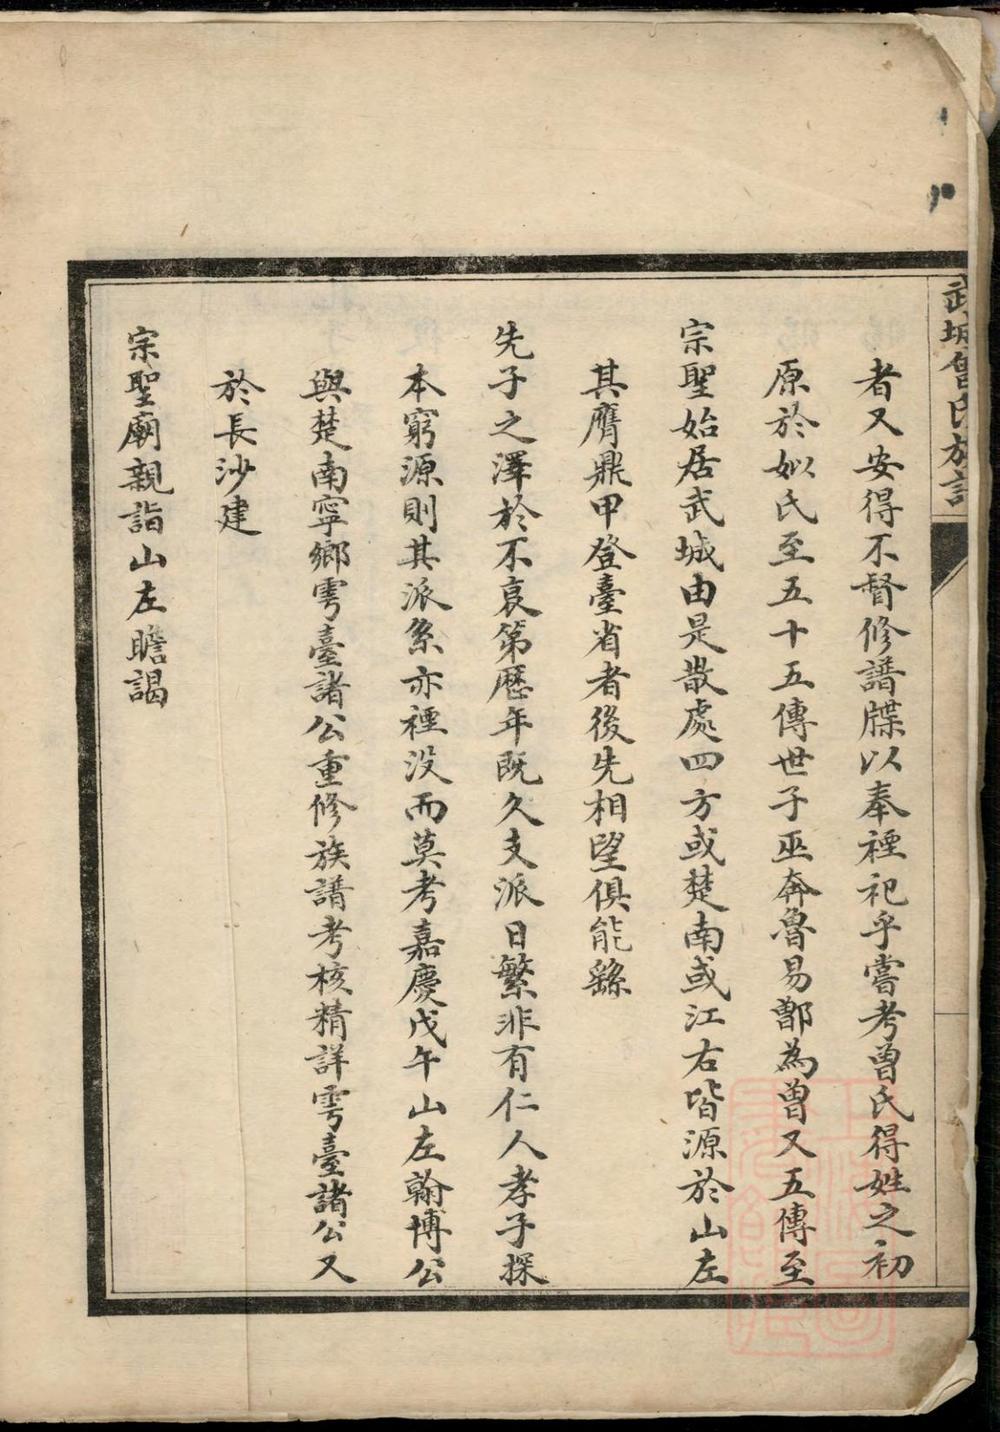 武城曾氏族譜
者又安得不督修譜牒以奉禋祀乎嘗考曾氏得姓之初
原於姒氏至五十五傳世子巫奔魯易鄫為曾又五傳至
宗聖始居武城由是散處四方或楚南或江右皆源於山左
其膺鼎甲登臺省者後先相望俱能繇
先子之澤於不衰第歷年既久支派日繁非有仁人孝子探
本窮源則其派系亦禋没而莫考嘉慶戊午山左翰博公
與楚南寧鄉雩臺諸公重修族譜考核精詳雩臺諸公又
於長沙建
宗聖廟親詣山左瞻謁